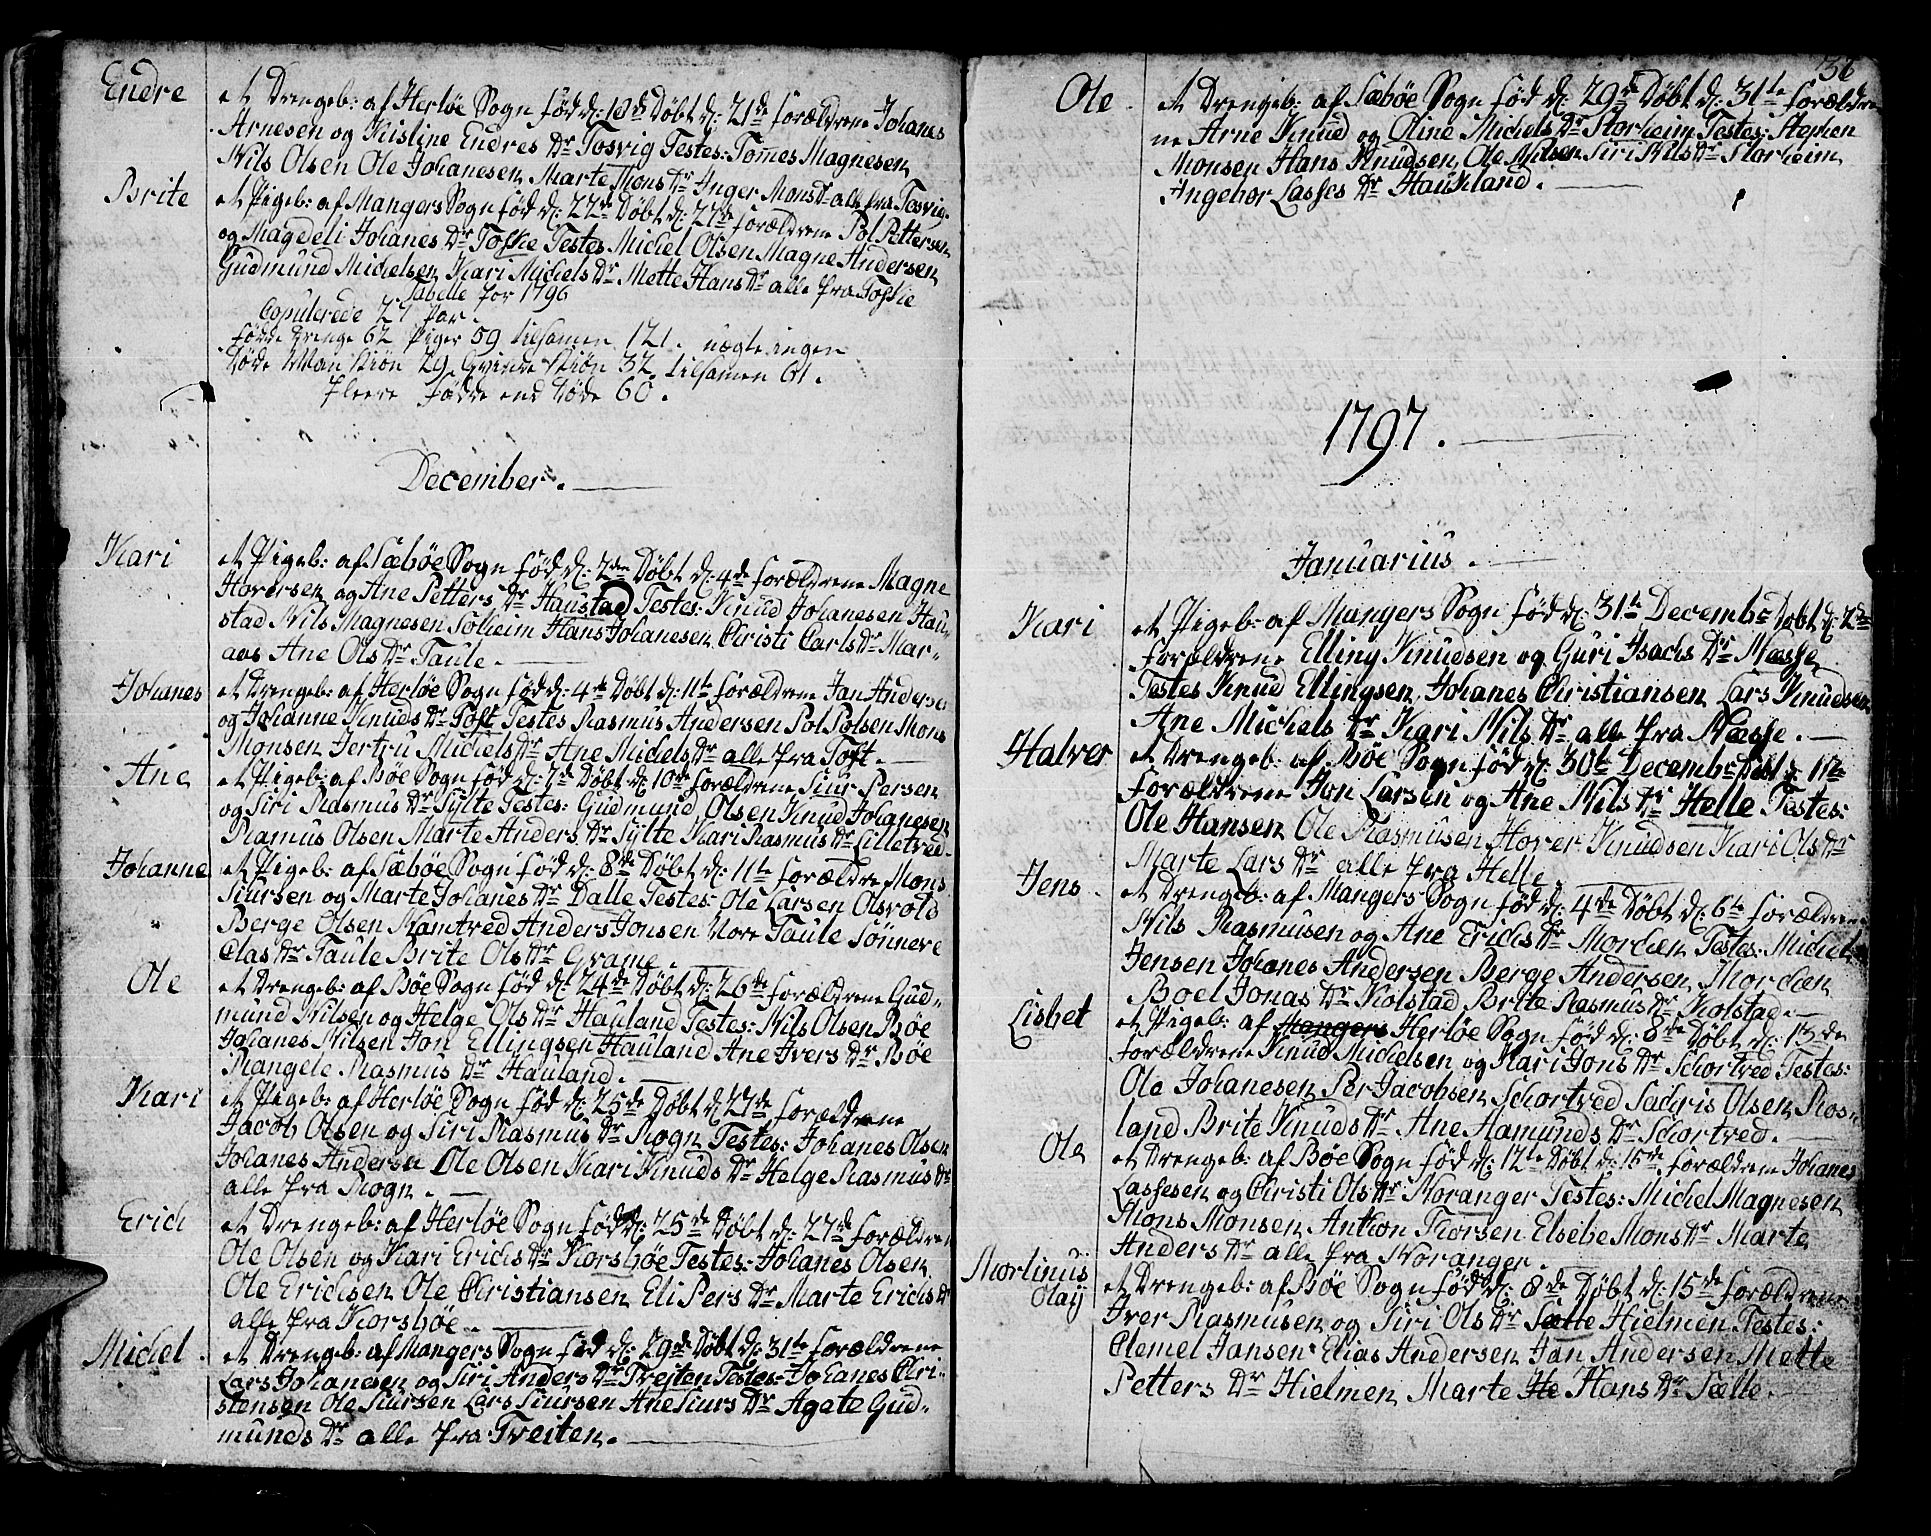 Endre
et Drengeb: af Herløe Sogn født d: 18de Døbt d: 21de forældrene Johanes
Arnesen og Kristine Endres Dr Tosvig Testes: Tomes Magnesen
Nils Olsen Ole Johanesen Marte Mons Dr Anger Mons Dr alle fra Tosvig
Brite
et Pigeb: af Mangers Sogn født d: 22de Døbt d: 27de forældrene Pol Pettersen
og Magdeli Johanes Dr Toske Testes Michel Olsen Magne Andersen
Gudmund Michelsen Kari Michels Dr Mette Hans Dr alle fra Toske
Tabelle for 1796
Copulerede 27 Par.
fødde Drenge 62 Piger 59 tilsamen 121. uægte ingen
døde Man Kiøn 29 Qvinde Kiøn 32 tilsamen 61.
fleere fødde end døde 60.
December.
Kari
et Pigeb: af Sæbøe Sogn født d: 2den Døbt d: 4de forældrene Magne
Hoversen og Ane Petters Dr Haustad Testes: Knud Johanesen Hau-
stad Nils Magnesen Solheim Hans Johanesen Christi Carls Dr Mar-
aas Ane Ols Dr Taule.
Johanes
et Drengeb: af Herløe Sogn født d: 4de Døbt d: 11te forældrene Jan Andersen
og Johanne Knuds Dr Toft Testes Rasmus Andersen Pol Polsen Mons
Monsen Jertru Michels Dr Ane Michels Dr alle fra Toft.
Ane
et Pigeb: af Bøe Sogn født d: 7de Døbt d: 10de forældrene Siur Persen
og Siri Rasmus Dr Sylte Testes: Gudmund Olsen Knud Johanesen
Rasmus Olsen Marte Anders Dr Sylte Kari Rasmus Dr Lilletved.
Johanne
et Pigeb: af Sæbøe Sogn født d: 8de Døbt d: 11te forældre Mons
Siursen og Marte Johanes Dr Dalle Testes: Ole Larsen Olsvold
Berge Olsen Kamtred Anders Jonsen Nore Taule Sønneve
Clas Dr Taule Brite Ols Dr Grame.
Ole
et Drengeb: af Bøe Sogn født d: 24de Døbt d: 26de forældrene Gud-
mund Nilsen og Helge Ols Dr Hauland Testes: Nils Olsen Bøe
Johanes Nilsen Jon Ellingsen Hauland Ane Ivers Dr Bøe
Rangele Rasmus Dr Hauland.
Kari
et Pigeb: af Herløe Sogn født d: 25de Døbt d: 27de forældrene
Jacob Olsen og Siri Rasmus Dr Rogn Testes: Johanes Olsen
Johanes Andersen Ole Olsen Kari Knuds Dr Helge Rasmus Dr
alle fra Rogn.
Erich
et Drengeb: af Herløe Sogn født d: 25de Døbt d: 27de forældrene
Ole Olsen og Kari Erichs Dr Korsbøe Testes: Johanes Olsen
Ole Erichsen Ole Christiansen Eli Pers Dr Marte Erichs Dr
alle fra Korsbøe.
Michel.
et Drengeb: af Mangers Sogn født d: 29de Døbt d: 31te forældrene
Lars Johanesen og Siri Anders Dr Treiten Testes: Johanes Chri-
stensen Ole Siursen Lars Siursen Ane Siurs Dr Agate Gud-
munds Dr alle fra Treiten.
36
Ole
et Drengeb: af Sæbøe Sogn født d: 29de Døbt d: 31te forældre
ne Arne Knud og Oline Michels Dr Storheim Testes: Stephen
Monsen Hans Knudsen Ole Nilsen Siri Nils Dr Storheim
Ingebor Lasses Dr Haukland.
1797.
Januarius.
Kari
et Pigeb: af Mangers Sogn født d: 31te Decembr Døbt d: 2den
forældrene Elling Knudsen og Guri Isachs Dr Næsse
Testes Knud Ellingsen Johanes Christiansen Lars Knudsen
Ane Michels Dr Kari Nils Dr alle fra Næsse.
Halver
et Drengeb: af Bøe Sogn født d: 30te Decembr Døbt d: 11te
forældrene Jon Larsen og Ane Nils Dr Helle Testes:
Ole Hansen Ole Rasmusen Hover Knudsen Kari Ols Dr
Marte Lars Dr alle fra Helle.
Jens
et Drengeb: af Mangers Sogn født d: 4de Døbt d: 6te forældrene
Nils Rasmusen og Ane Erichs Dr Morchen Testes: Michel
Jensen Johanes Andersen Berge Andersen Morchen
Boel Jonas Dr Kolstad Brite Rasmus Dr Kolstad.
Lisbet
et Pigeb: af Mangers Herløe Sogn født d: 8de Døbt d: 13de
forældrene Knud Michelsen og Kari Jons Dr Schortred Testes:
Ole Johanesen Per Jacobsen Schortred Sachris Olsen Ros-
land Brite Knuds Dr Ane Hamunds Dr Schortred.
Ole
et Drengeb: af Bøe Sogn født d: 12te Døbt d: 15de forældrene Johanes
Lassesen og Christi Ols Dr Noranger Testes: Michel Magnesen
Mons Monsen Anthon Thorsen Elsebe Mons Dr Marte
Anders Dr alle fra Noranger.
Mortinus
Olaij
et Drengeb: af Bøe Sogn født d: 8de Døbt d: 15de forældrene
Iver Rasmusen og Siri Ols Dr Sætte Hielmen Testes:
Clemet Jansen Elias Andersen Jan Andersen Mette
Petters Dr Hielmen Marte He Hans Dr Sælle.